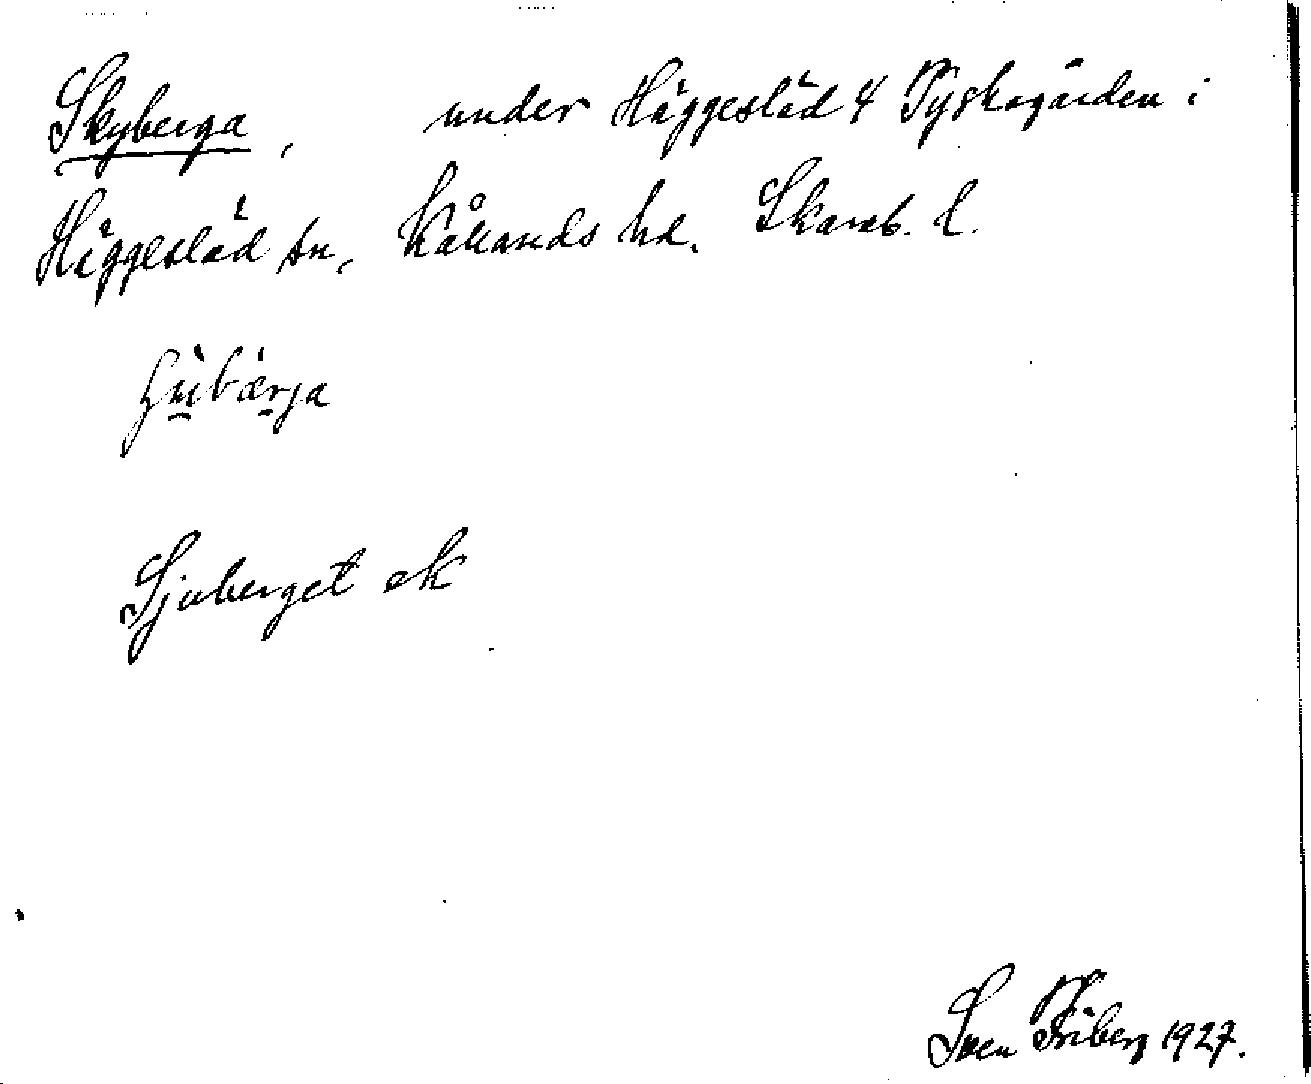 Skyberga, under Häggesled 4 Tyskagården i
Häggesled sn, Kållands hd. Skarab. l.
Sjuberget ek
Sven Friberg 1927.